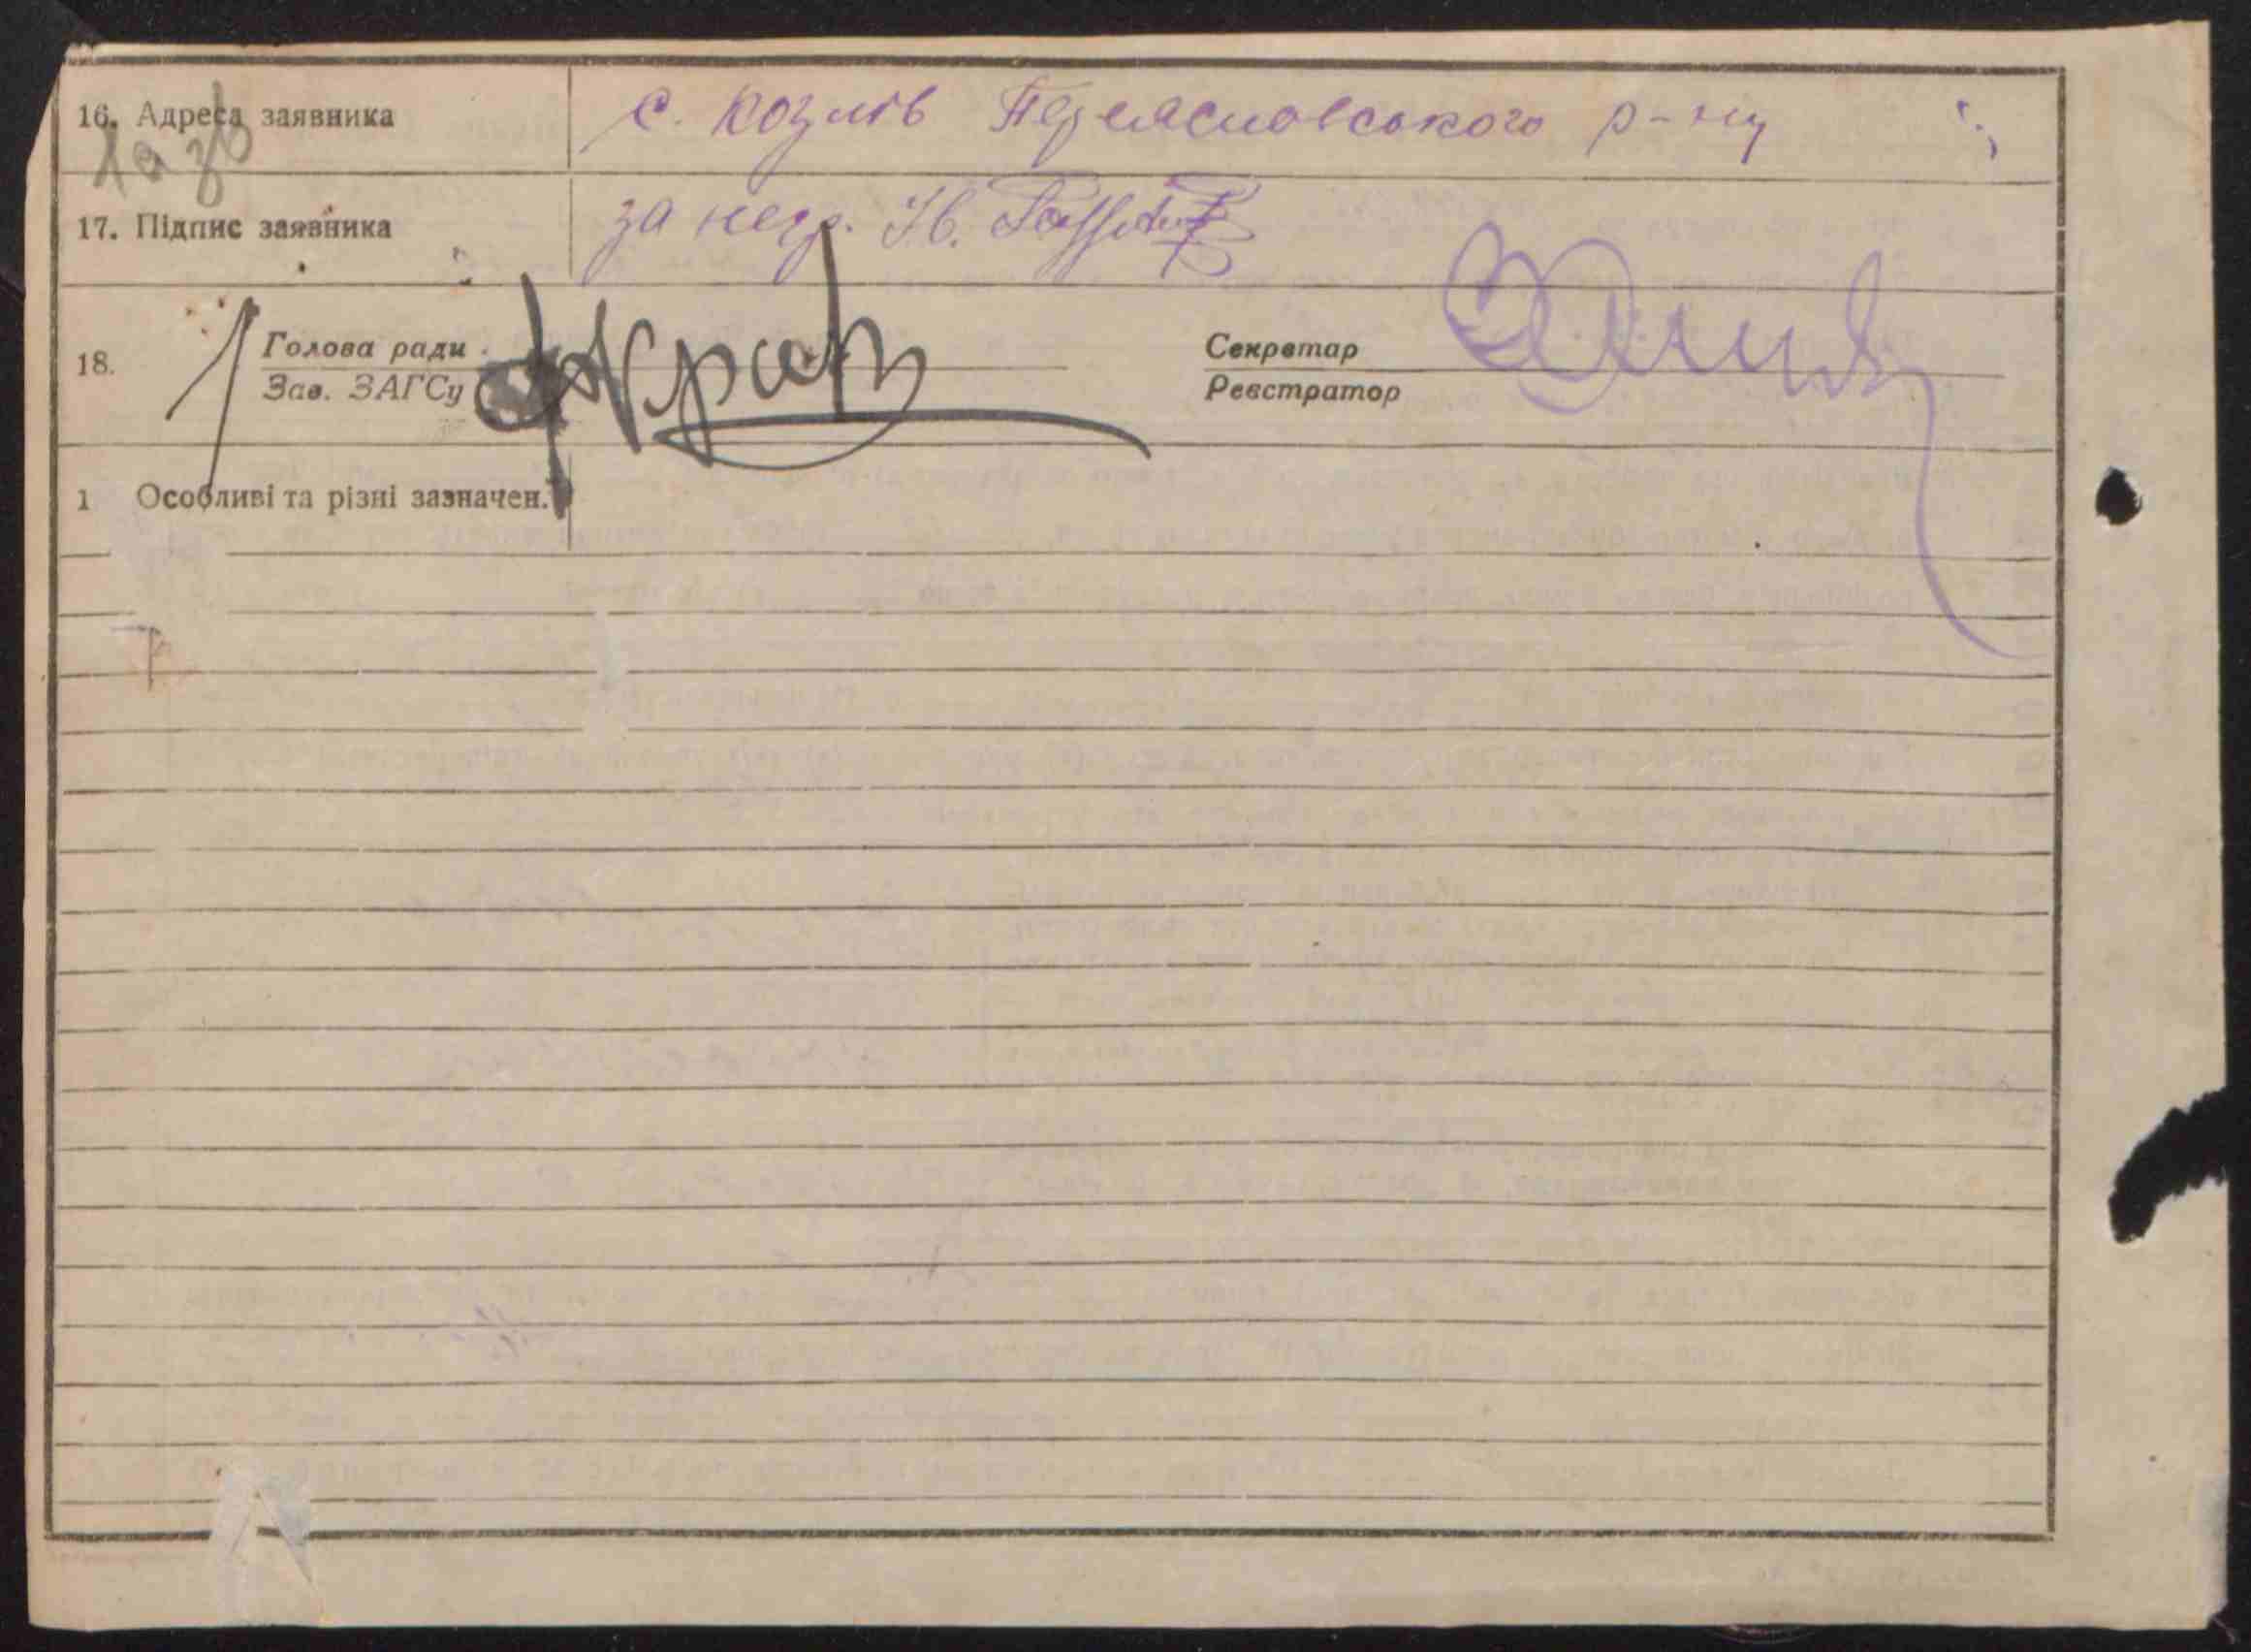 16. Адреса заявника с. Козлів Переяславського р-ну
17. Підпис заявника за негр. Ів.
18. Голова ради Секретар
Зав. ЗАГСу Реєстратор
1 Особливі та різні зазначен.